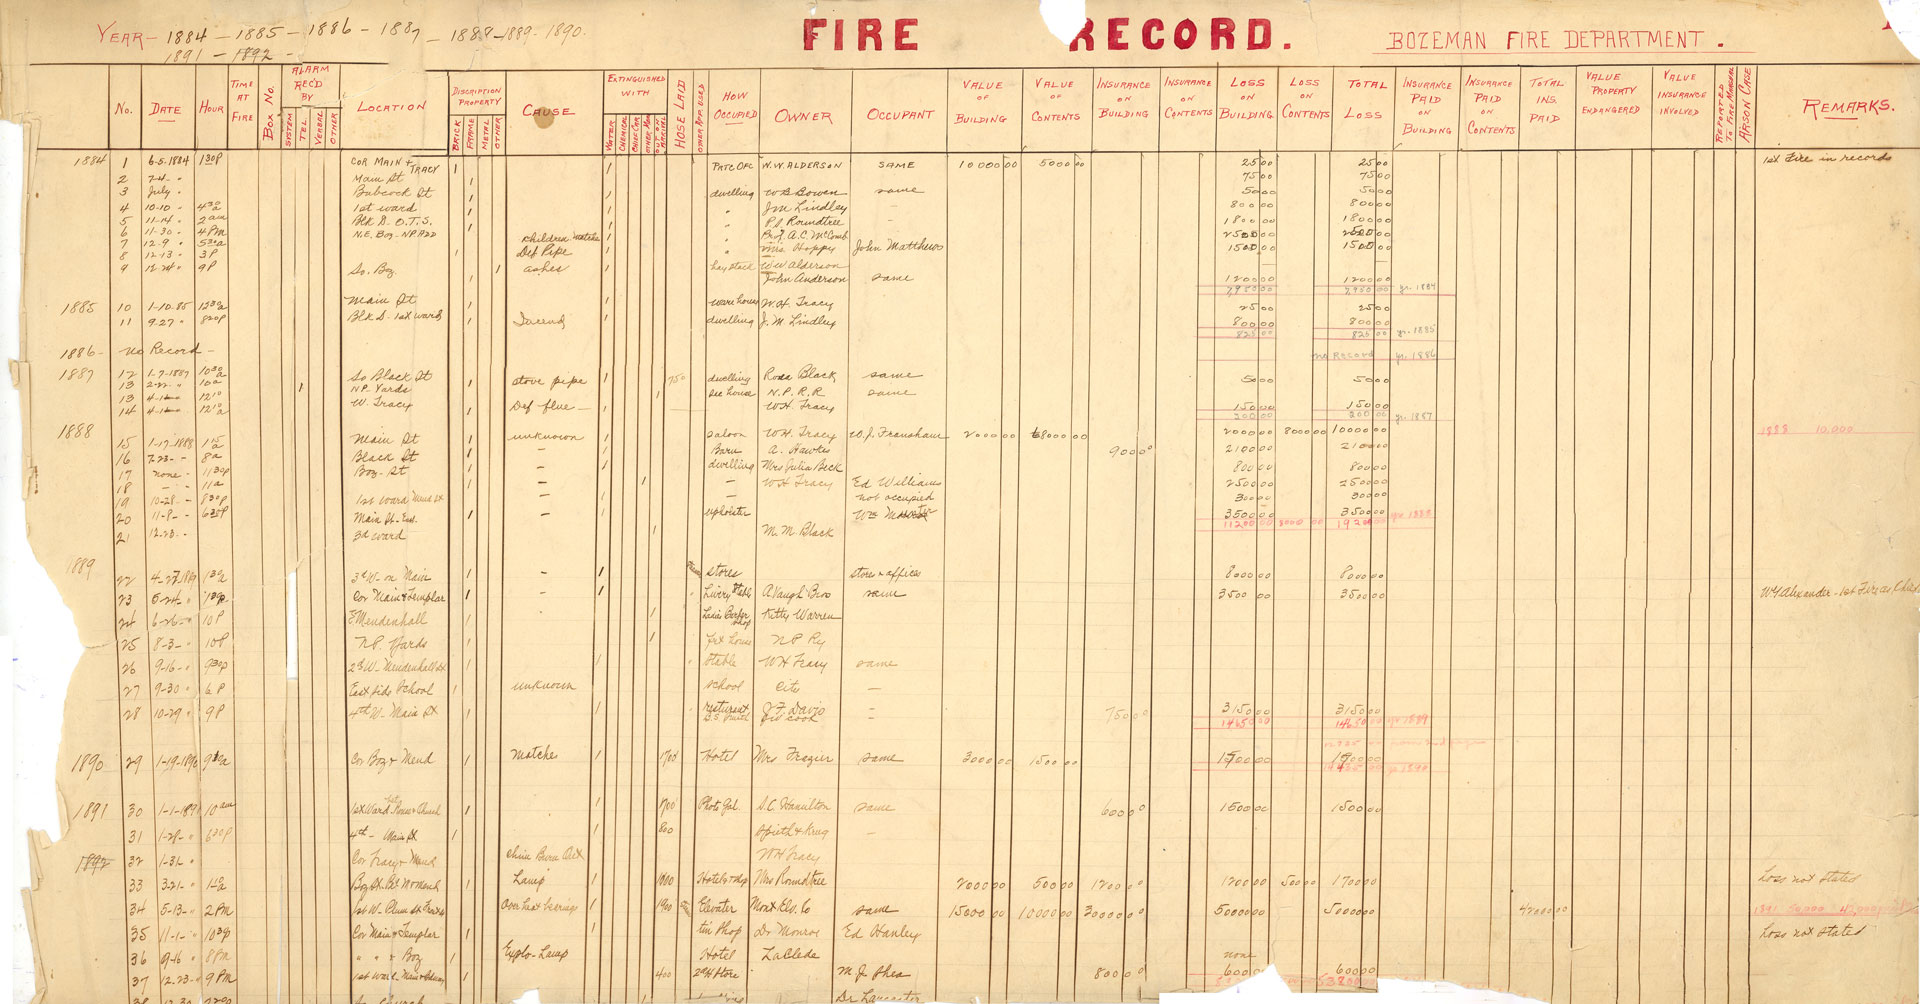 YEAR - 1884 - 1885 - 1886 - 1887 - 1888 - 1889 - 1890 -
1891 - 1892 -
FIRE RECORD.
BOZEMAN FIRE DEPARTMENT.
No. DATE HOUR TIME AT FIRE BOX No. ALARM REC'D BY SYSTEM TEL. VERBAL OTHER LOCATION DISCRIPTION PROPERTY BRICK FRAME METAL OTHER CAUSE EXTINGUISHED WITH WATER CHEMICAL HOSE LAID HOW OCCUPIED OWNER OCCUPANT VALUE OF BUILDING VALUE OF CONTENTS INSURANCE ON BUILDING INSURANCE ON CONTENTS LOSS ON BUILDING LOSS ON CONTENTS TOTAL LOSS INSURANCE PAID ON BUILDING INSURANCE PAID ON CONTENTS TOTAL INS. PAID VALUE PROPERTY ENDANGERED VALUE INSURANCE INVOLVED REPORTED TO FIRE MARSHAL ARSON CASE REMARKS.
1884 1 6-5-1884 130P COR MAIN + TRACY 1 1 PATC OFC W.W. ALDERSON SAME 10000 00 5000 00 25 00 25 00 1st Fire in records
2 7-4- " Main St 1 75 00 75 00
3 July " Babcock St 1 dwelling W B Bowen same 50 00 50 00
4 10-10 " 430a 1st ward " J M Lindley - 800 00 800 00
5 11-14 " 2am Blk D. O.T.S. " P.J. Roundtree - 1800 00 1800 00
6 11-30 " 4PM N.E. Boz - NPADD " Prof. A.C. McComb 2500 00 2500 00
7 12-9 " 530a children matches " Mrs Hoppy John Matthews 1500 00 1500 00
8 12-13 " 3P Def Pipe hay stack WW Alderson
9 12-24 " 9P So. Boz ashes John Anderson same 1200 00 1200 00
7950 00 7950 00 yr. 1884
1885 10 1-10-85 1230a Main St warehouse W.H. Tracy 25 00 25 00
11 9-27 " 820P Blk D- 1st ward dwelling J. M. Lindley 800 00 800 00
825 00 825 00 yr. 1885
1886 - No Record - No Record yr. 1886
1887 12 1-7-1887 1030a So Black St stove pipe 750 dwelling Rosa Black same 50 00 50 00
13 2-22 " 10a N.P. Yards sec house N.P.R.R same
13 4-12 " 1210 W. Tracy W.H. Tracy 150 00 150 00
14 4-12 " 1210a Def flue - 200 00 200 00 yr. 1887
1888 15 1-17-1888 115a Main St unknown saloon W.H. Tracy W.J. Franshaw 2000 00 8000 00 2000 00 8000 00 10000 00 1888 10,000
16 7-23- - 8a Black St - Barn A. Hawkes 900 00 2100 00 2100 00
17 none - 1130P Boz- St - dwelling Mrs Julia Beck 800 00 800 00
18 - - 11a - - W H Tracy Ed Williams 2500 00 2500 00
19 10-28- - 830P 1st ward Mend St - - not occupied 300 00 300 00
20 11-8- - 630P Main St- - upholster 3500 00 3500 00
11200 00 8000 00 19200 00 yr 1888
21 12-23- 3d ward M. M. Black
1889 22 4-27-1889 130a 3d W- on Main - stores stores + offices 8000 00 8000 00
23 5-24- " 130P Cor Main + Templar - Livery Stable A Vaugh Bros same 3500 00 3500 00 W Y Alexander - 1st Fire as Chief
24 6-26- " 10P E Mendenhall Ladies Barber shop Kitty Warren
25 8-3- " 10P N.P. Yards house N P Ry
26 9-16- " 930P 2d W- Mendenhall St Stable W H Tracy same
27 9-30 " 6P East side School unknown school City -
28 10-29 " 9P 4th W- Main St resturant J. F. Davis - 750 00 3150 00 3150 00
14650 00 14650 00 yr 1889
1890 29 1-19-1890 930a Cor Boz + Mend matches 1700 Hotel Mrs Frazier same 3000 00 1500 00 1500 00 1500 00
1891 30 1-1-1891 10am 1st Ward Rouse + Church 1700 Photo Gal. S.C. Hamilton same 600 00 1500 00 1500 00
31 1-28- " 630P 4th - Main St 800 Spieth + Krug -
1892 32 1-31- " Cor Tracy + Mend chim Burn Out W H Tracy
33 3-21- " 110a Lamp 1000 Hotel + shop Mrs Roundtree 2000 00 500 00 1200 00 1200 00 500 00 1700 00 Loss not stated
34 5-13- " 2PM 1st W- Plum St Over heat bearings 1900 Elevater Mont Elv. Co same 15000 00 10000 00 30000 00 50000 00 50000 00 42000 00
35 11-1- " 1030P Cor Main + Templar tin shop Dr Monroe Ed Hanley Loss not stated
36 9-16 " 8PM " " + Boz Explo- Lamp Hotel LaClede none
37 12-23- " 9PM 1st Ward 400 2d H Store M. J. Shea 800 00 600 00 600 00
38 12-30 Church Dr Lancaster